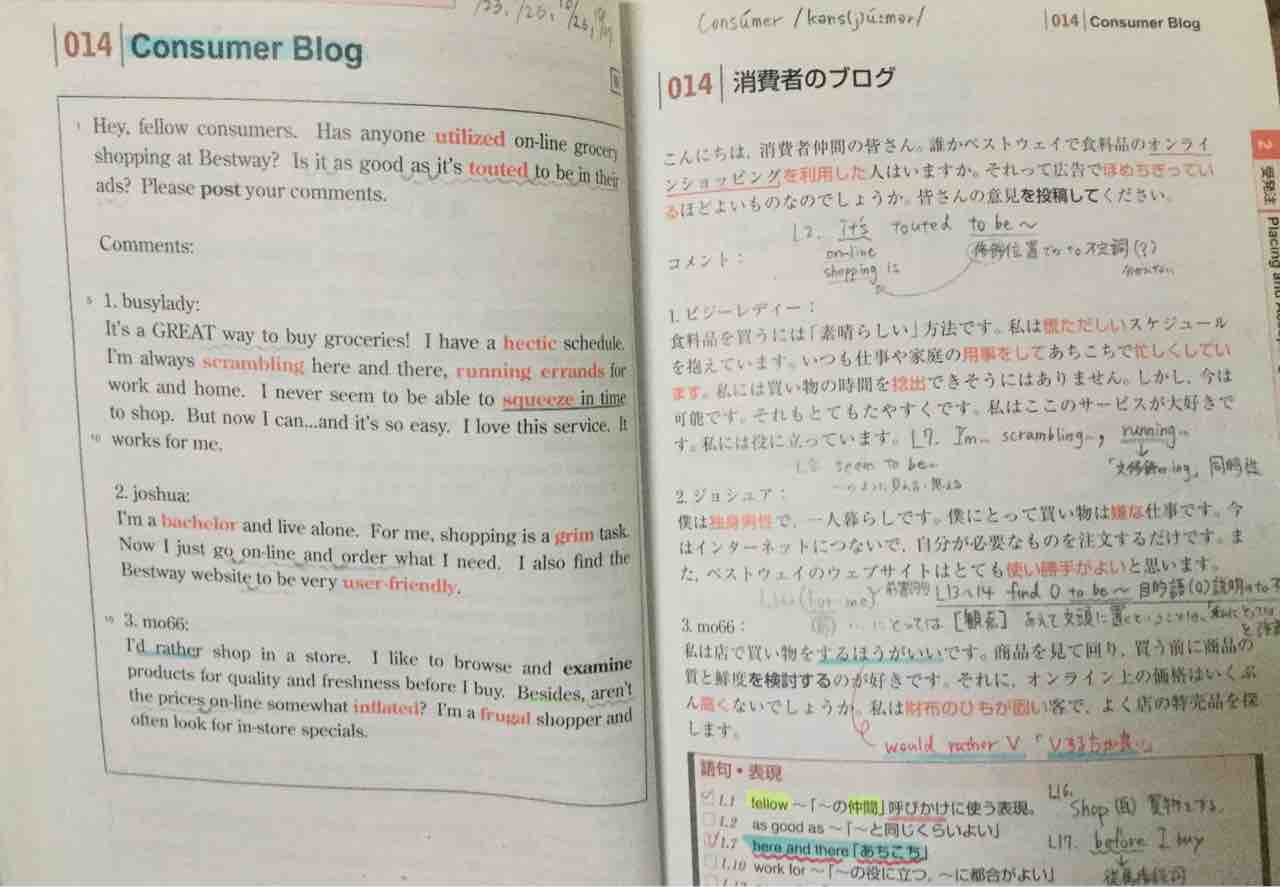 014 Consumer Blog
1 Hey, fellow consumers. Has anyone utilized on-line grocery
shopping at Bestway? Is it as good as it's touted to be in their
ads? Please post your comments.
Comments:
5 1. busylady:
It's a GREAT way to buy groceries! I have a hectic schedule.
I'm always scrambling here and there, running errands for
work and home. I never seem to be able to squeeze in time
to shop. But now I can...and it's so easy. I love this service. It
10 works for me.
2. joshua:
I'm a bachelor and live alone. For me, shopping is a grim task.
Now I just go on-line and order what I need. I also find the
Bestway website to be very user-friendly.
15 3. mo66:
I'd rather shop in a store. I like to browse and examine
products for quality and freshness before I buy. Besides, aren't
the prices on-line somewhat inflated? I'm a frugal shopper and
often look for in-store specials.
Consúmer /kəns(j)ú:mər/
014 Consumer Blog
014 消費者のブログ
こんにちは，消費者仲間の皆さん。誰かベストウェイで食料品のオンライ
ンショッピングを利用した人はいますか。それって広告でほめちぎってい
るほどよいものなのでしょうか。皆さんの意見を投稿してください。
L2. it's touted to be ~
on-line
shopping is
コメント：
1. ビジーレディー：
食料品を買うには「素晴らしい」方法です。私は慌ただしいスケジュール
を抱えています。いつも仕事や家庭の用事をしてあちこちで忙しくしてい
ます。私には買い物の時間を捻出できそうにはありません。しかし，今は
可能です。それもとてもたやすくです。私はここのサービスが大好きで
す。私には役に立っています。
L7. I'm… scrambling…, running…
同時性
seem to be
2. ジョシュア：
僕は独身男性で，一人暮らしです。僕にとって買い物は嫌な仕事です。今
はインターネットにつないで，自分が必要なものを注文するだけです。ま
た，ベストウェイのウェブサイトはとても使い勝手がよいと思います。
L13~14 find O to be ~ 目的語(O)説明
(for me)
…にとっては [観点] あえて文頭に
3. mo66：
私は店で買い物をするほうがいいです。商品を見て回り，買う前に商品の
質と鮮度を検討するのが好きです。それに，オンライン上の価格はいくぶ
ん高くないでしょうか。私は財布のひもが固い客で，よく店の特売品を探
します。
would rather V 「Vする方が良い」
語句・表現
L1 fellow ~「~の仲間」呼びかけに使う表現。
L2 as good as ~「~と同じくらいよい」
L7 here and there「あちこち」
L10 work for ~「~の役に立つ，~に都合がよい」
L16.
Shop (自) 買物をする
L17. before I buy
2 受発注 Placing and